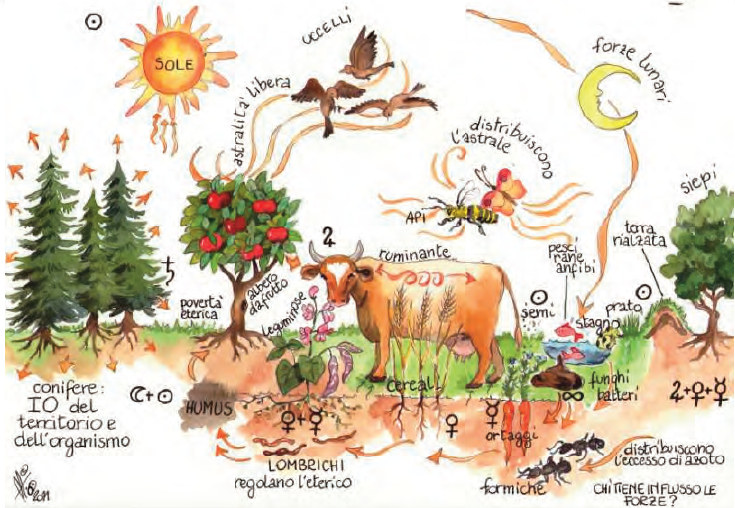 SOLE
UCCELLI
astralità libera
forze lunari
distribuiscono
l'astrale
API
siepi
ruminante
pesci
rane
anfibi
terra
rialzata
povertà
eterica
albero
da frutto
leguminose
semi
stagno
prato
conifere:
IO del
territorio e
dell'organismo
HUMUS
cereali
funghi
batteri
ortaggi
LOMBRICHI
regolano l'eterico
formiche
distribuiscono
l'eccesso di azoto
CHI TIENE IN FLUSSO LE
FORZE?